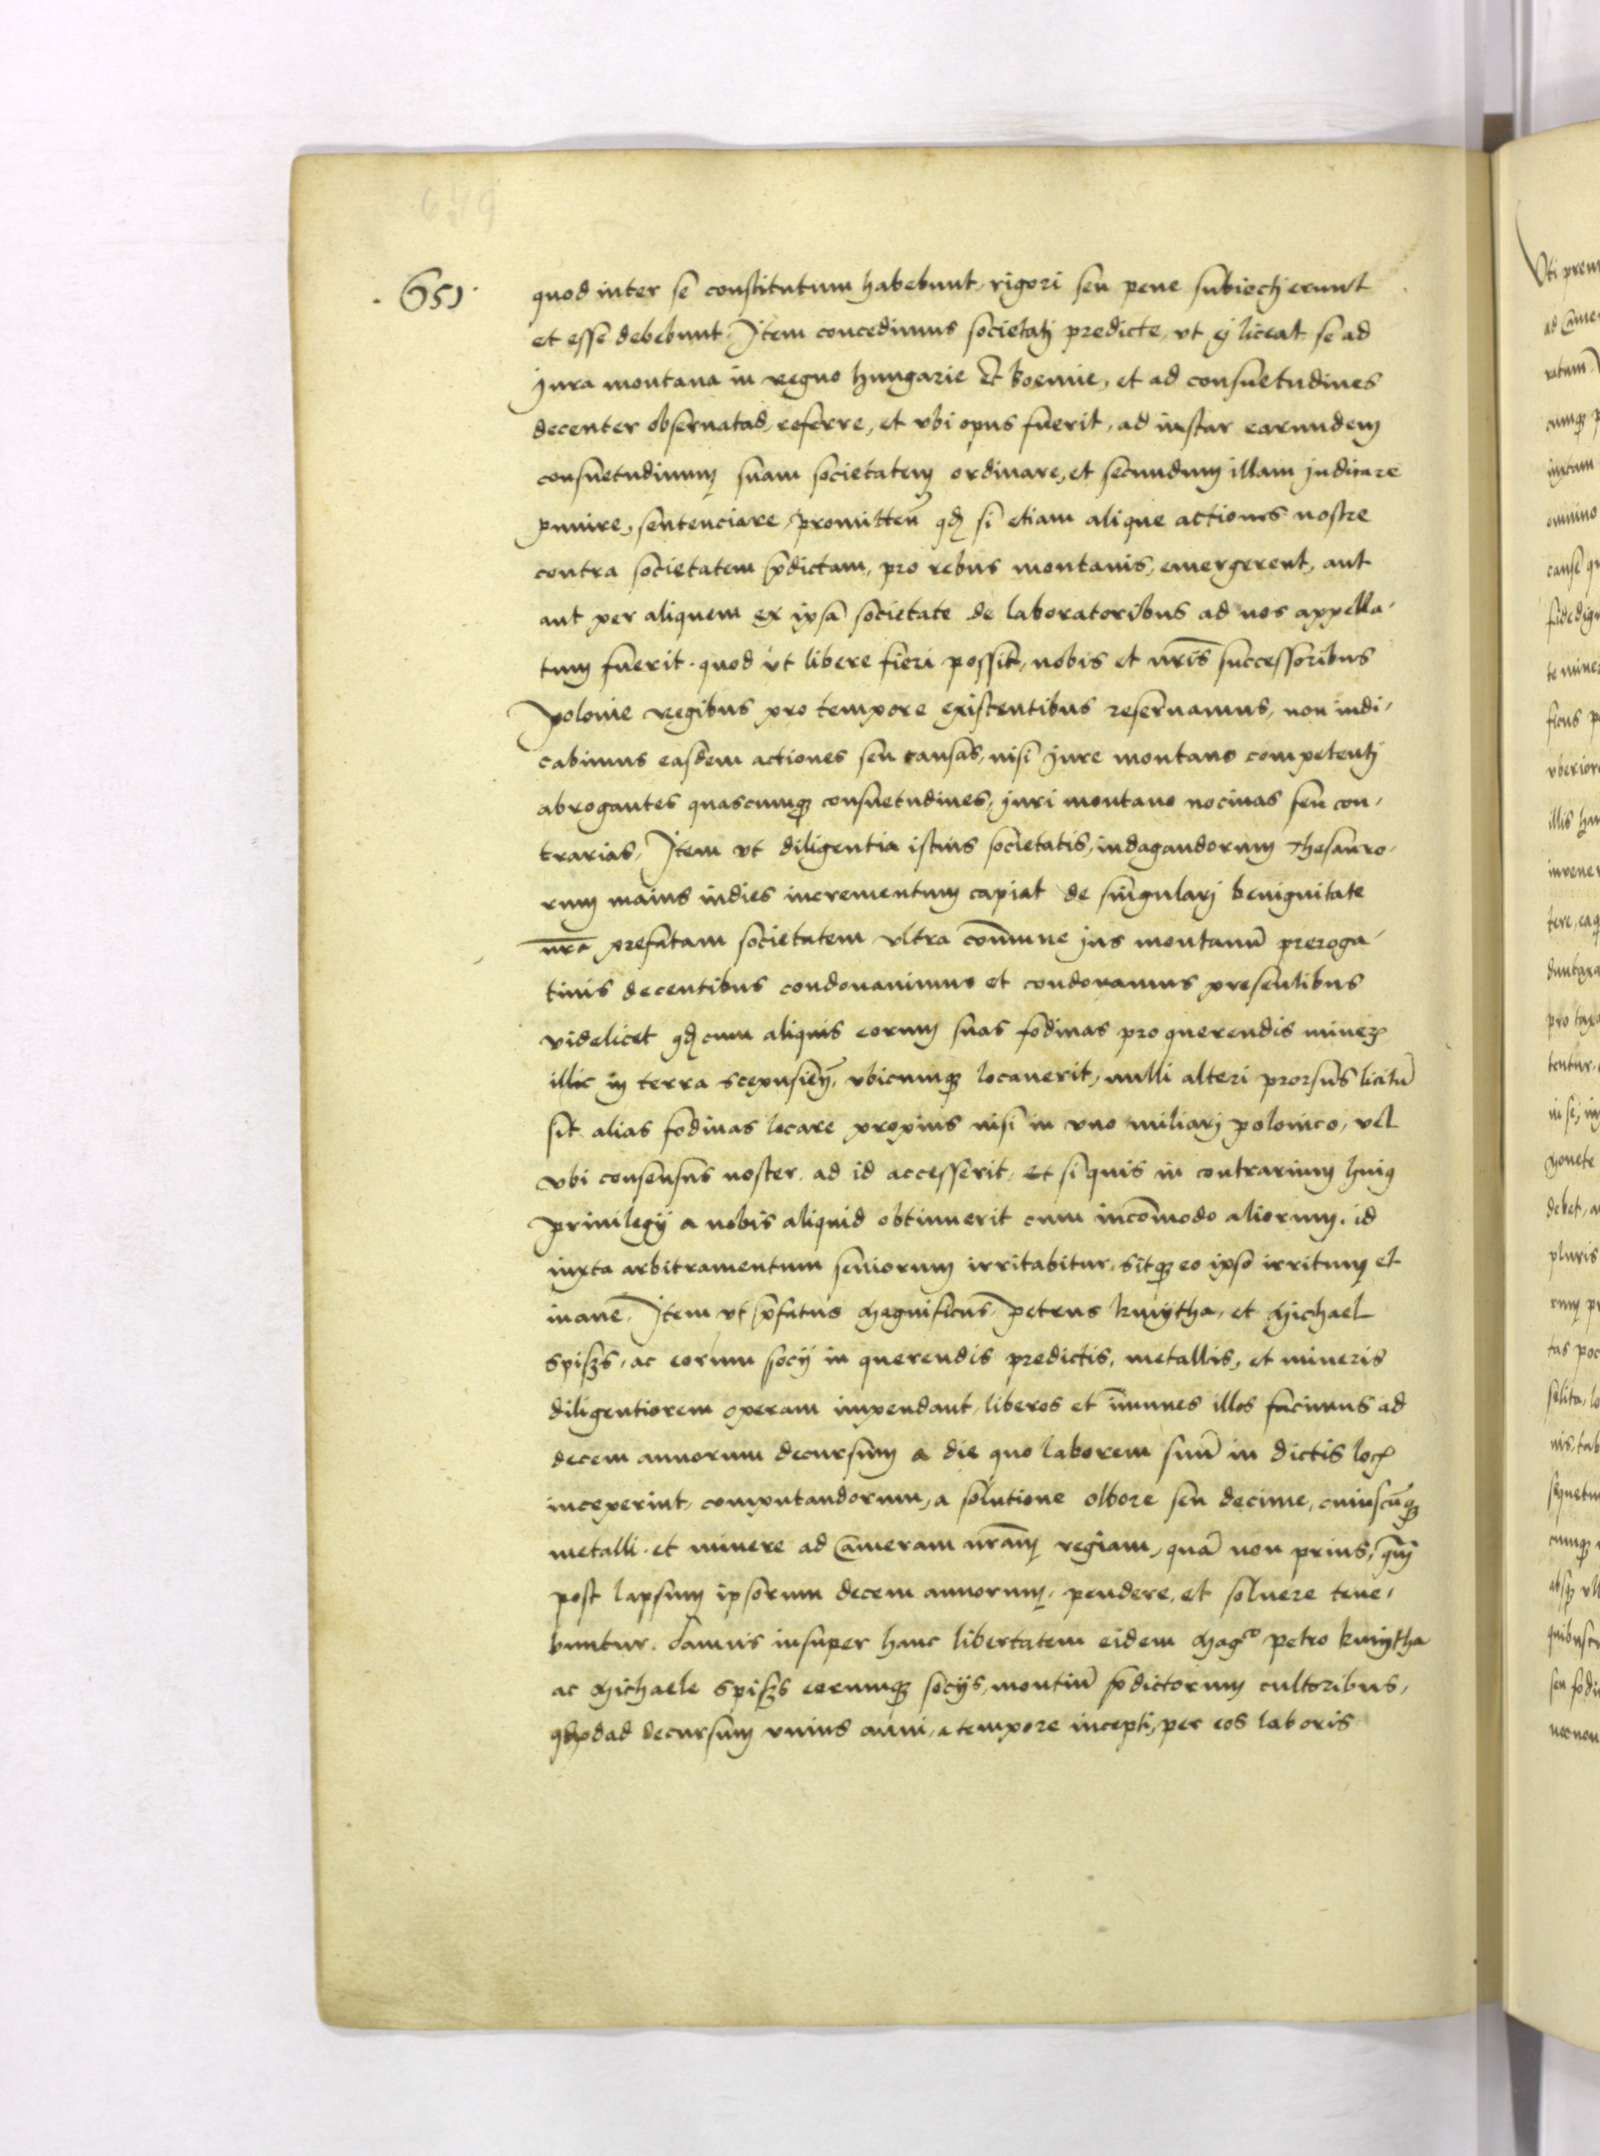 . 651 .
quod inter se constitutum habebunt, rigori seu pene subiectj erunt
et esse debebunt. Item concedimus societatj predicte, vt ej liceat se ad
Jura montana in regno hungarie et boemie, et ad consuetudines
decenter obseruatas, referre, et vbi opus fuerit, ad instar earundem
consuetudinum suam societatem ordinare, et secundum illam judicare
punire, sentenciare, promitteñ qđ si etiam alique actiones nostre
contra societatem p̃dictam, pro rebus montanis, emergerent, aut
aut per aliquem ex ipsa societate de laboratoribus ad nos appella-
tum fuerit. quod vt libere fieri possit, nobis et nr̃is successoribus
Polonie Regibus pro tempore existentibus reseruamus, non iudi-
cabimus easdem actiones seu causas, nisi jure montano competentj
abrogantes quascumqȝ consuetudines, juri montano nociuas seu con-
trarias, Item vt diligentia istius societatis, indagandorum Thesauro-
rum maius indies incrementum capiat de singularj benignitate
nr̃a prefatam societatem vltra com̃une jus montanũ preroga-
tiuis decentibus condonauimus et condonamus presentibus
videlicet qđ cum aliquis eorum suas fodinas pro querendis minerꝭ
illic in terra scepusień, vbicumqȝ locauerit, nulli alteri prorsus licitũ
sit alias fodinas locare propius nisi in vno miliarj polonico, vel
vbi consensus noster ad id accesserit. Et si quis in contrarium huiꝰ
priuilegij a nobis aliquid obtinuerit cum incom̃odo aliorum. id
iuxta arbitramentum seniorum irritabitur, sitqȝ eo ipso irritum et
inane. Item vt p̃fatus Magnificus Petrus kmytha, et Michael
Spiszs, ac eorum socij in querendis predictis, metallis, et mineris
diligentiorem operam impendant, liberos et im̃unes illos facimus ad
decem annorum decursum a die quo laborem suũ in dictis locꝭ
inceperint, computandorum, a solutione olbore seu decime, cuiuscũqȝ
metalli. et minere ad Cameram nr̃am regiam, quã non prius, qm̃
post lapsum ipsorum decem annorum. pendere, et soluere tene-
buntur. damus insuper hanc libertatem eidem Magco petro kmytha
ac Michaele Spiszs eorumqȝ socijs, montiũ p̃dictorum cultoribus,
quod ad decursum vnius anni, a tempore incepti, per eos laboris